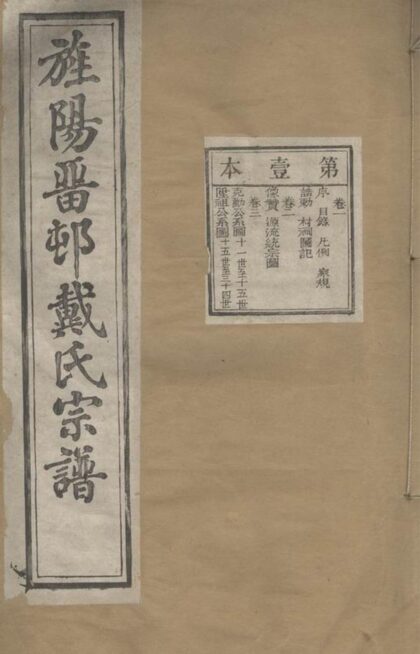 旌陽畱邨戴氏宗譜
第壹本
卷一
序 目錄 凡例 家規
誥勅 村洞圖記
卷二
像贊 源流統宗圖
卷三
克勤公系圖十一世至十五世
祖公系圖十五世至三十四世